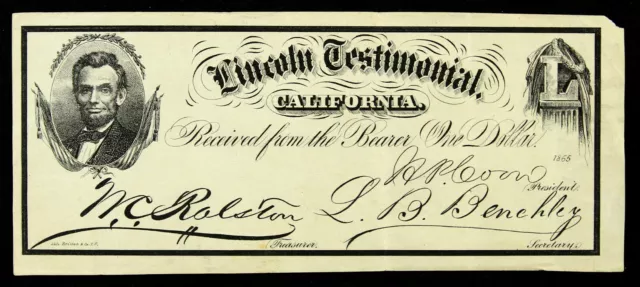 Lincoln Testimonial,
CALIFORNIA.
L
Received from the Bearer One Dollar.
1865
H.P. Coon
President.
W.C. Ralston L. B. Benchley
Treasurer. Secretary.